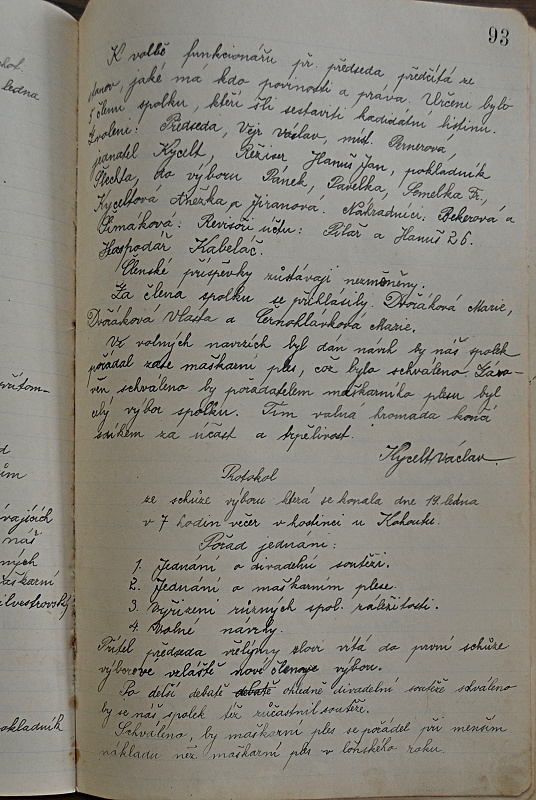 93
K volbě funkcionářů př. předseda předčítá ze
stanov, jaké má kdo povinosti a práva. Určeno bylo
5 členů spolku, kteří šli sestaviti kadidátní listinu.
Zvoleni: Předseda, Vejr Václav, míst. Pernerová,
jednatel Kycelt, Režiser Hanuš Jan, pokladník
Plechta, do výboru Pánek, Pavelka, Semelka Fr.,
Kyceltová Anežka a Jiranová. Náhradníci: Bekerová a
Šimáková: Revisoři účtu: Pilař a Hanuš 26.
Hospodář Kabeláč.
Členské příspěvky zůstávají nezměněny.
Za člena spolku se přihlásily. Dvořáková Marie,
Dvořáková Vlasta a Černohlávková Marie.
Ve volných navrzích byl dán návrh by náš spolek
pořádal zase maškarní ples, což bylo schváleno. Záro-
veň schváleno by pořadatelem maškarního plesu byl
celý výbor spolku. Tím valná hromada koná
díkem za účast a trpělivost.
Kycelt Václav
Protokol
ze schůze výboru která se konala dne 19. ledna
v 7 hodin večer v hostinci u Kohouta.
Pořad jednání:
1. Jednání o divadelní soutěži.
2. Jednání o maškarním plese.
3. Vyřízení různých spol. záležitostí.
4. Volné návrhy.
Přítel předseda vřelými slovi vítá do první schůze
výborové zvláště nové členove výboru.
Po delší debatě debatě ohledně divadelní soutěže schváleno
by se náš spolek též zúčastnil soutěže.
Schváleno, by maškarní ples se pořádel při menším
nákladu než maškarní ples v loňského roku.
ledna
vajících
náš
ných
aškarní
ilvestrovský
okladník